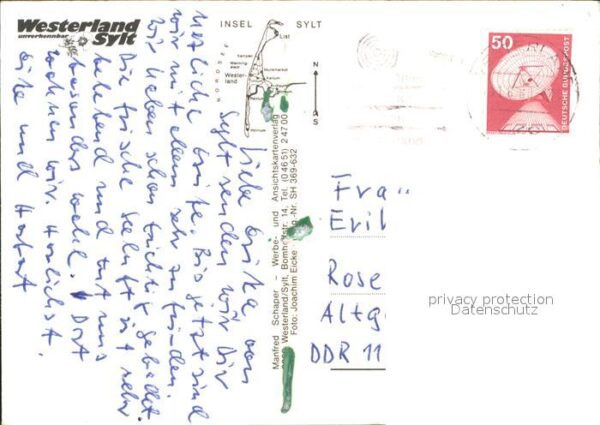 Westerland
unverkennbar Sylt
INSEL SYLT
NORDSEE
List
Kampen
Westerland
Keitum
Rantum
Hörnum
N
S
50
DEUTSCHE BUNDESPOST
Liebe Erika, von
Sylt senden wir Dir
herzliche Grüße. Bis jetzt sind
wir mit allem sehr zufrieden.
Wir haben schon tüchtig gebadet.
Die frische Seeluft ist sehr
belebend und tut uns
besonders wohl. Dort
wohnen wir. Herzlichst
und
Manfred Schaper - Werbe- und Ansichtskartenverlag
Westerland/Sylt, Bomhoffstr. 14, Tel. (0 46 51) 2 47 00
Foto: Joachim Eicke Nr. SH 369-632
Frau
Rose
Altg
DDR 11
privacy protection
Datenschutz